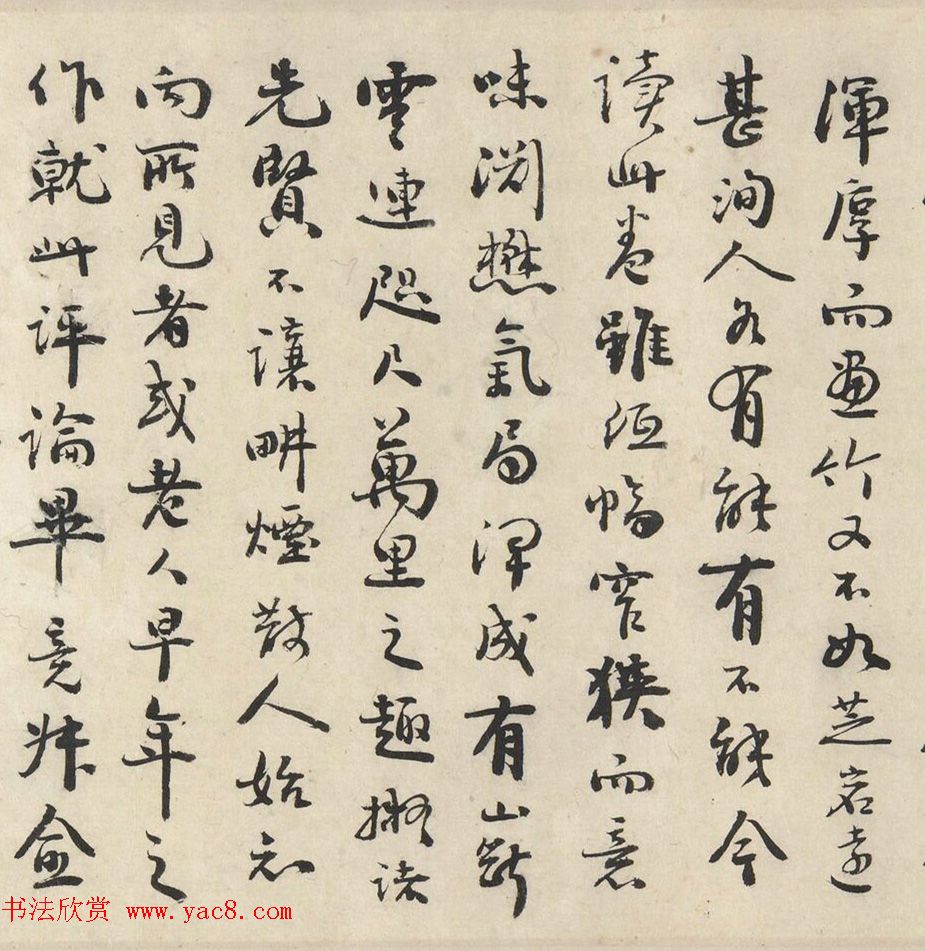 渾厚而畫竹又不如芝岩遠
甚洵人各有能有不能今
讀此卷雖紙幅窄狹而意
味淵懋氣局渾成有山斷
雲連咫尺萬里之趣擬諸
先賢不讓畊煙散人始知
向所見者或老人早年之
作就此評論畢竟叔美
书法欣赏 www.yac8.com